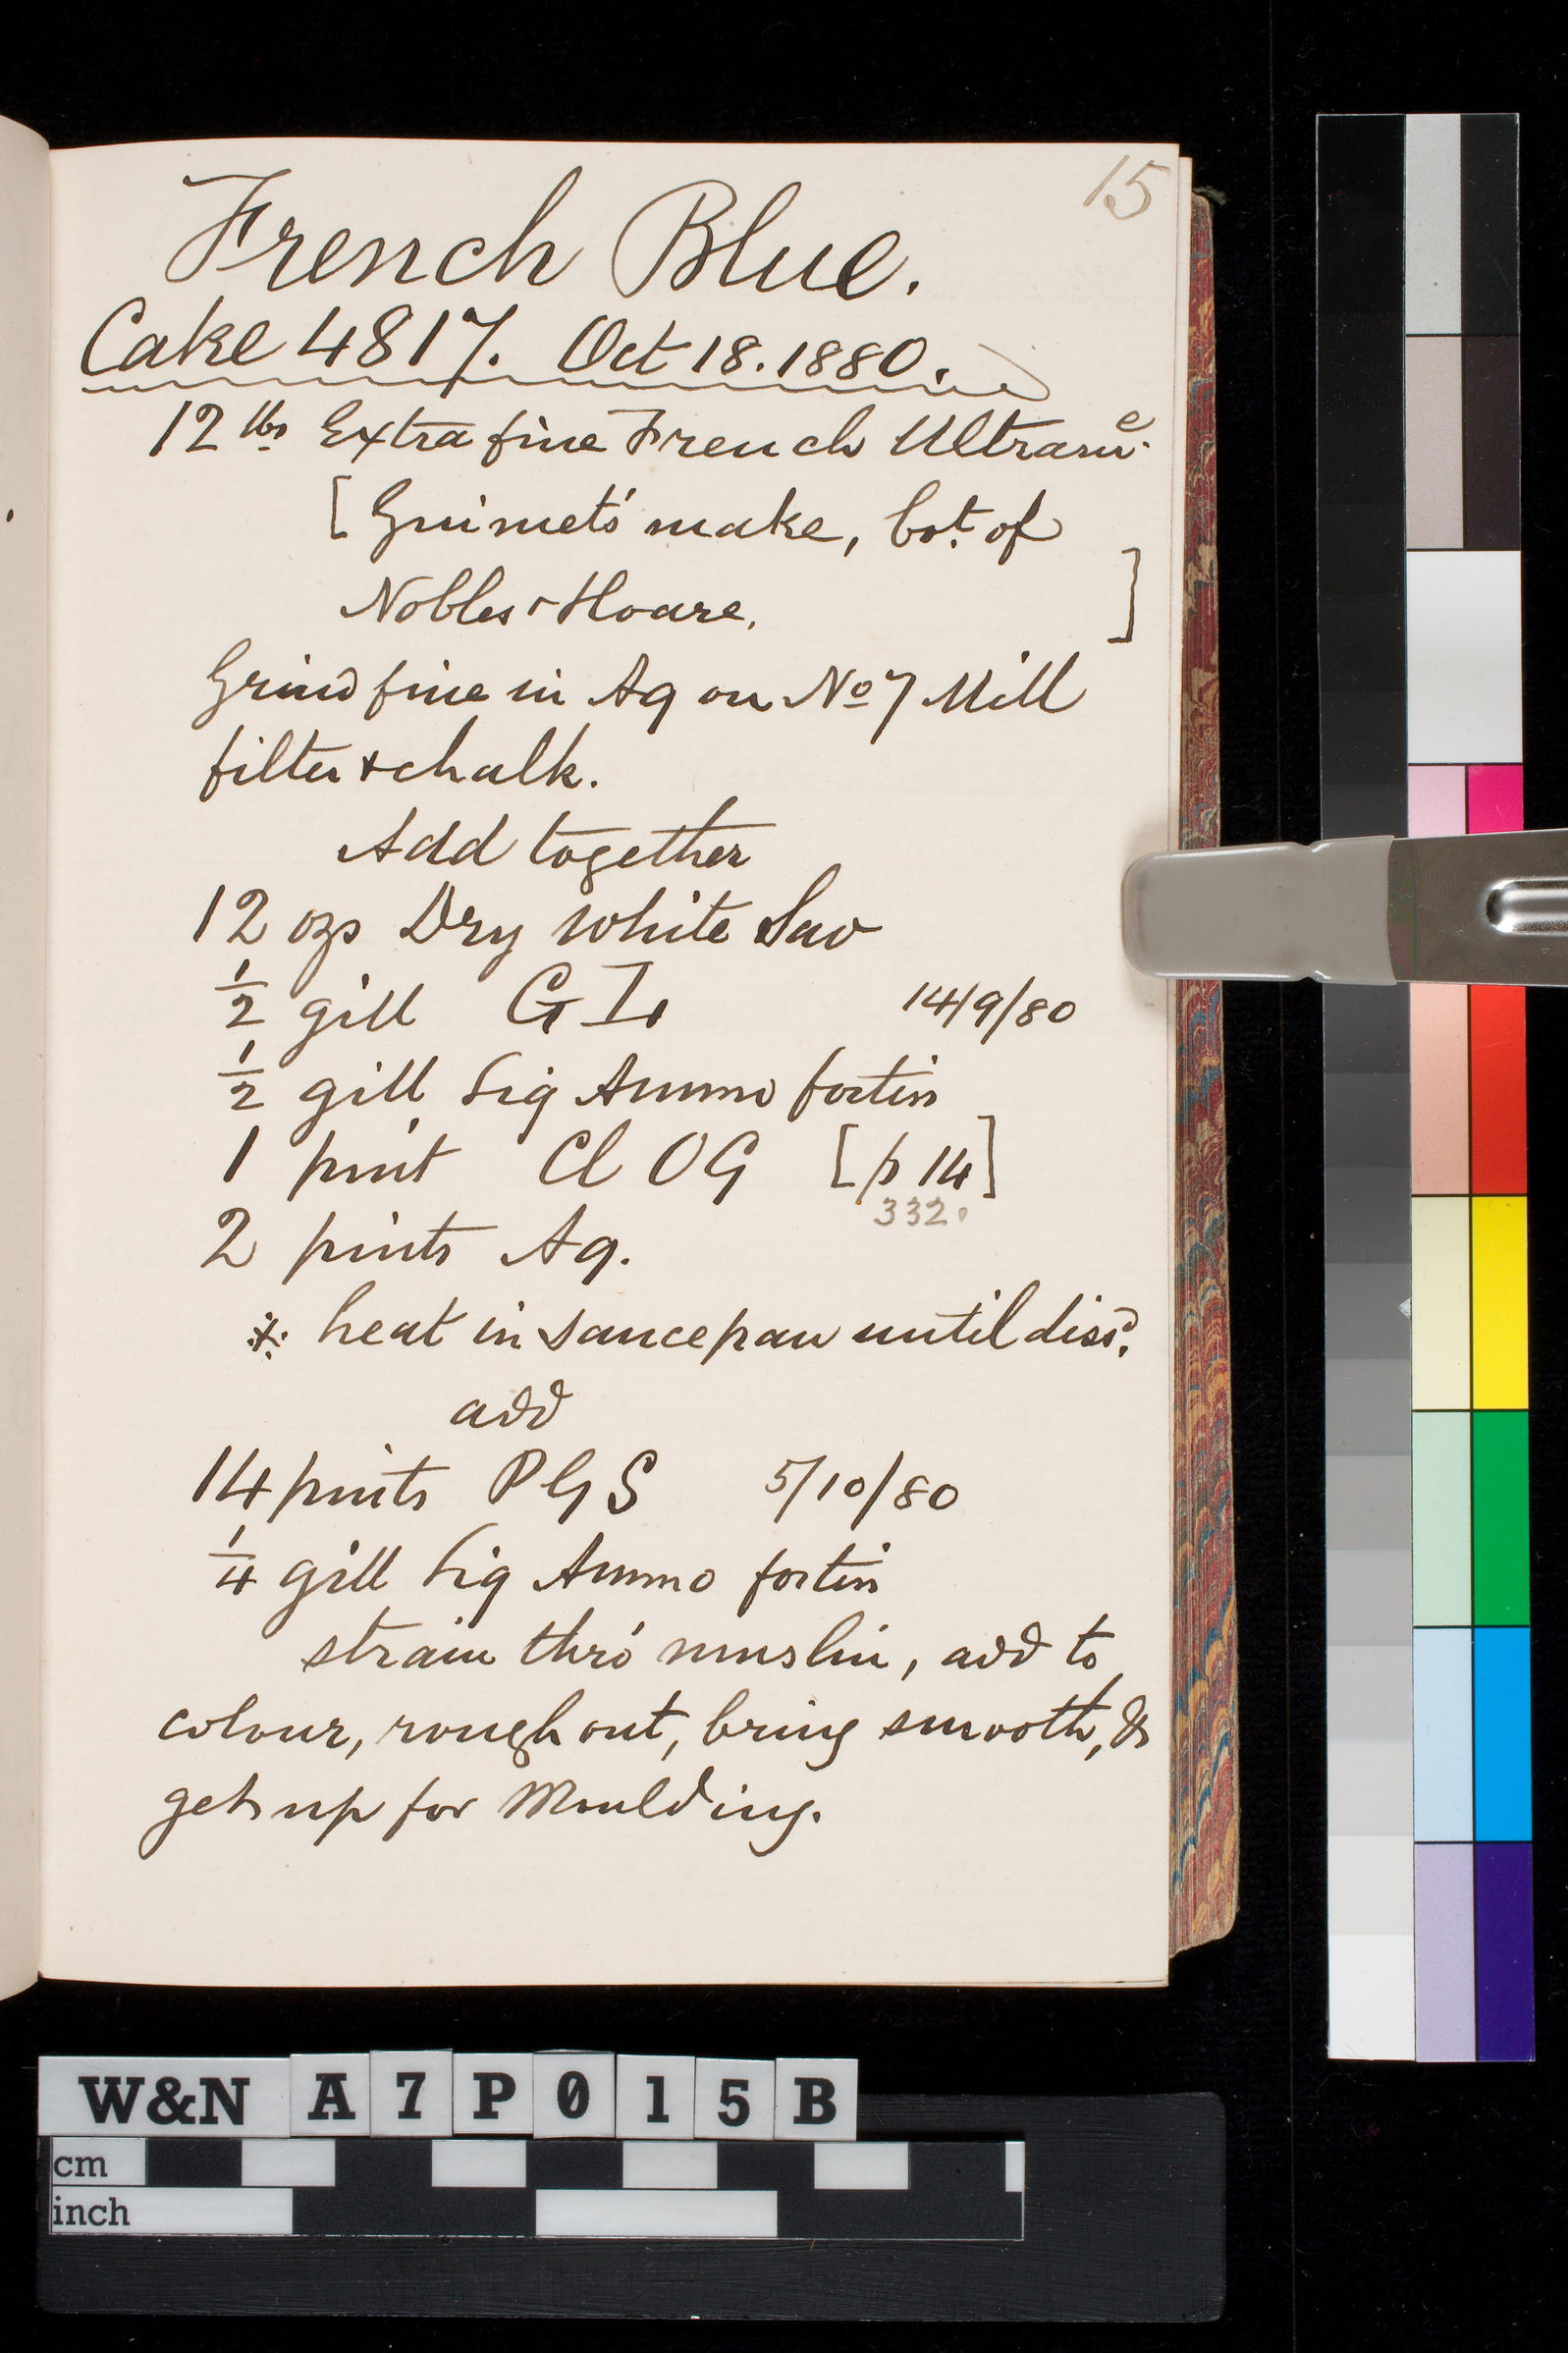 15
French Blue.
Cake 4817. Oct 18. 1880.
12 lbs Extra fine French Ultramᵉ.
[Guimet's make, bot. of
Nobles & Hoare. ]
Grind fine in Aq on No 7 Mill
filter & chalk.
Add together
12 ozs Dry White Lav
½ gill GL 14/9/80
½ gill Liq Ammo fortis
1 pint Cl OG [p 14]
332.
2 pints Aq.
heat in saucepan until dissd.
add
14 pints PGS 5/10/80
¼ gill Liq Ammo fortis
strain thro' muslin, add to
colour, rough out, bring smooth, &
get up for Moulding.
W&N A7P015B
cm
inch